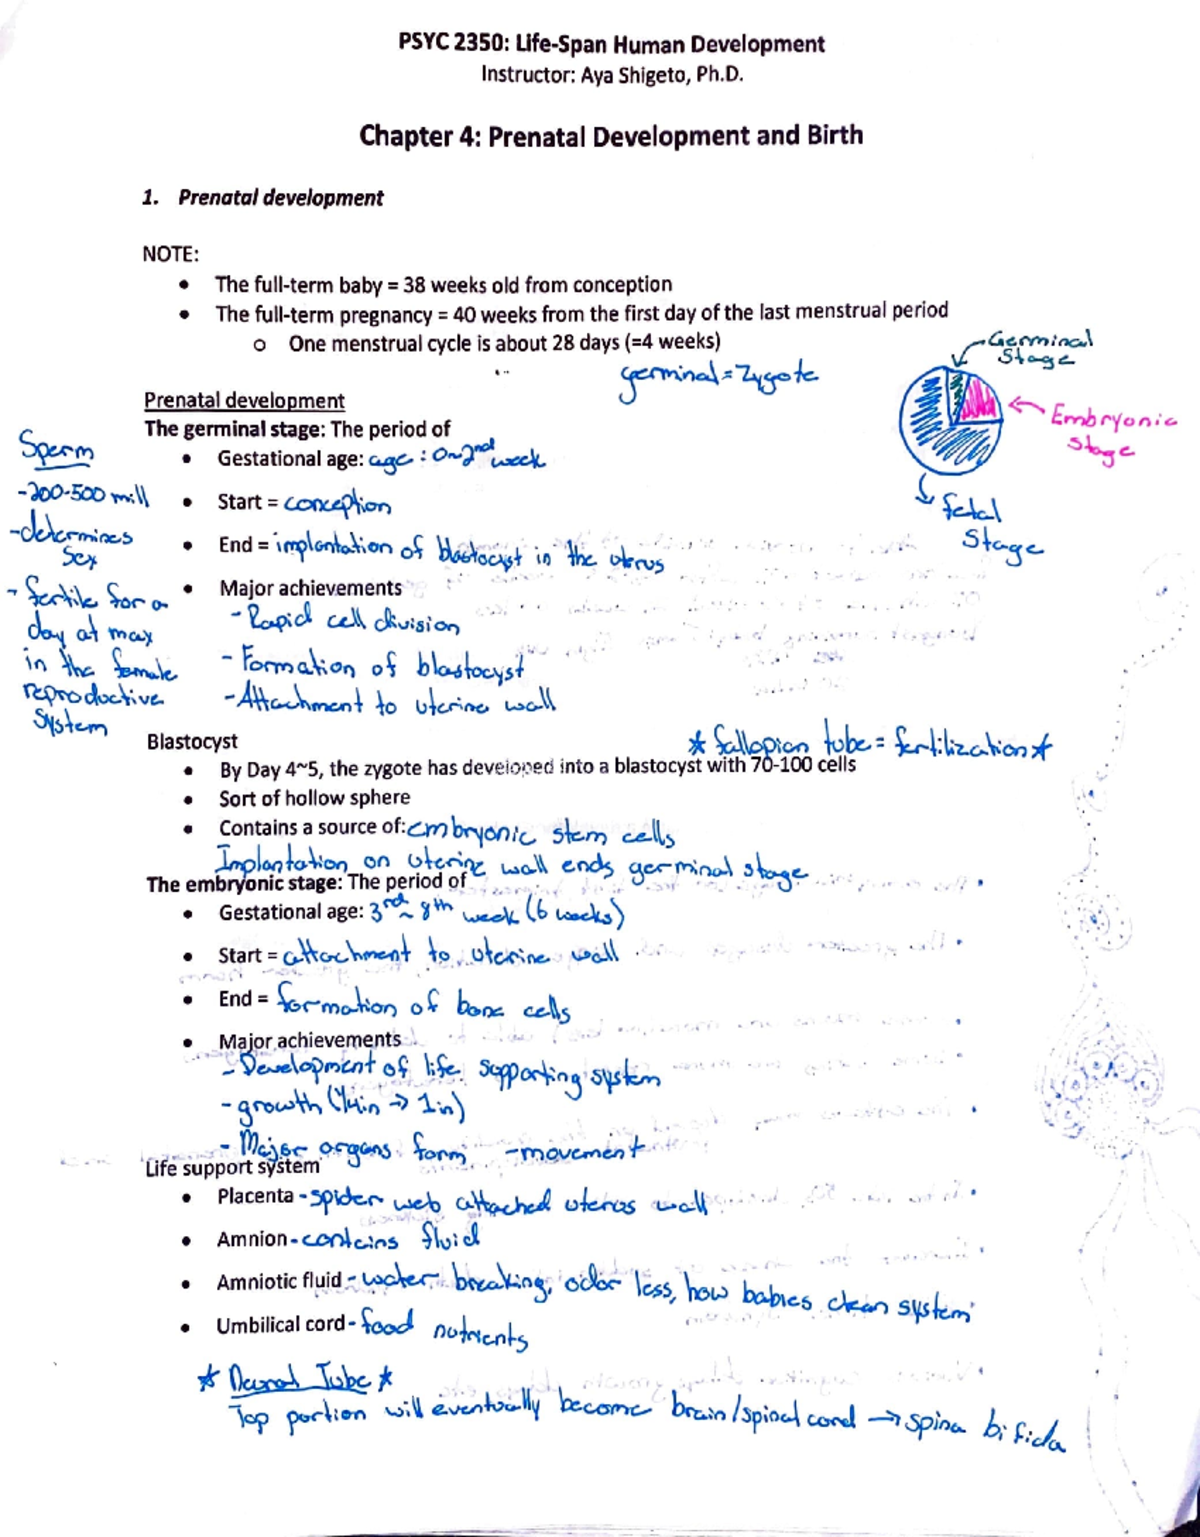 PSYC 2350: Life-Span Human Development
Instructor: Aya Shigeto, Ph.D.
Chapter 4: Prenatal Development and Birth
1. Prenatal development
NOTE:
• The full-term baby = 38 weeks old from conception
• The full-term pregnancy = 40 weeks from the first day of the last menstrual period
o One menstrual cycle is about 28 days (=4 weeks)
germinal = Zygote
Germinal
Stage
Embryonic
Stage
fetal
Stage
Prenatal development
The germinal stage: The period of
• Gestational age: age: 0~2nd week
• Start = conception
• End = implantation of blastocyst in the uterus
• Major achievements
- Rapid cell division
- Formation of blastocyst
- Attachment to uterine wall
Sperm
- 200-500 mill
- determines
sex
- fertile for a
day at max
in the female
reproductive
system
* fallopian tube = fertilization *
Blastocyst
• By Day 4~5, the zygote has developed into a blastocyst with 70-100 cells
• Sort of hollow sphere
• Contains a source of: embryonic stem cells
Implantation on uterine wall ends germinal stage
The embryonic stage: The period of
• Gestational age: 3rd~8th week (6 weeks)
• Start = attachment to uterine wall
• End = formation of bone cells
• Major achievements
- Development of life supporting system
- growth (1/4in → 1in)
- Major organs form - movement
Life support system
• Placenta - spider web attached uterus wall
• Amnion - contains fluid
• Amniotic fluid - water breaking, odor less, how babies clean system
• Umbilical cord - food nutrients
* Neural Tube *
Top portion will eventually become brain/spinal cord → spina bifida